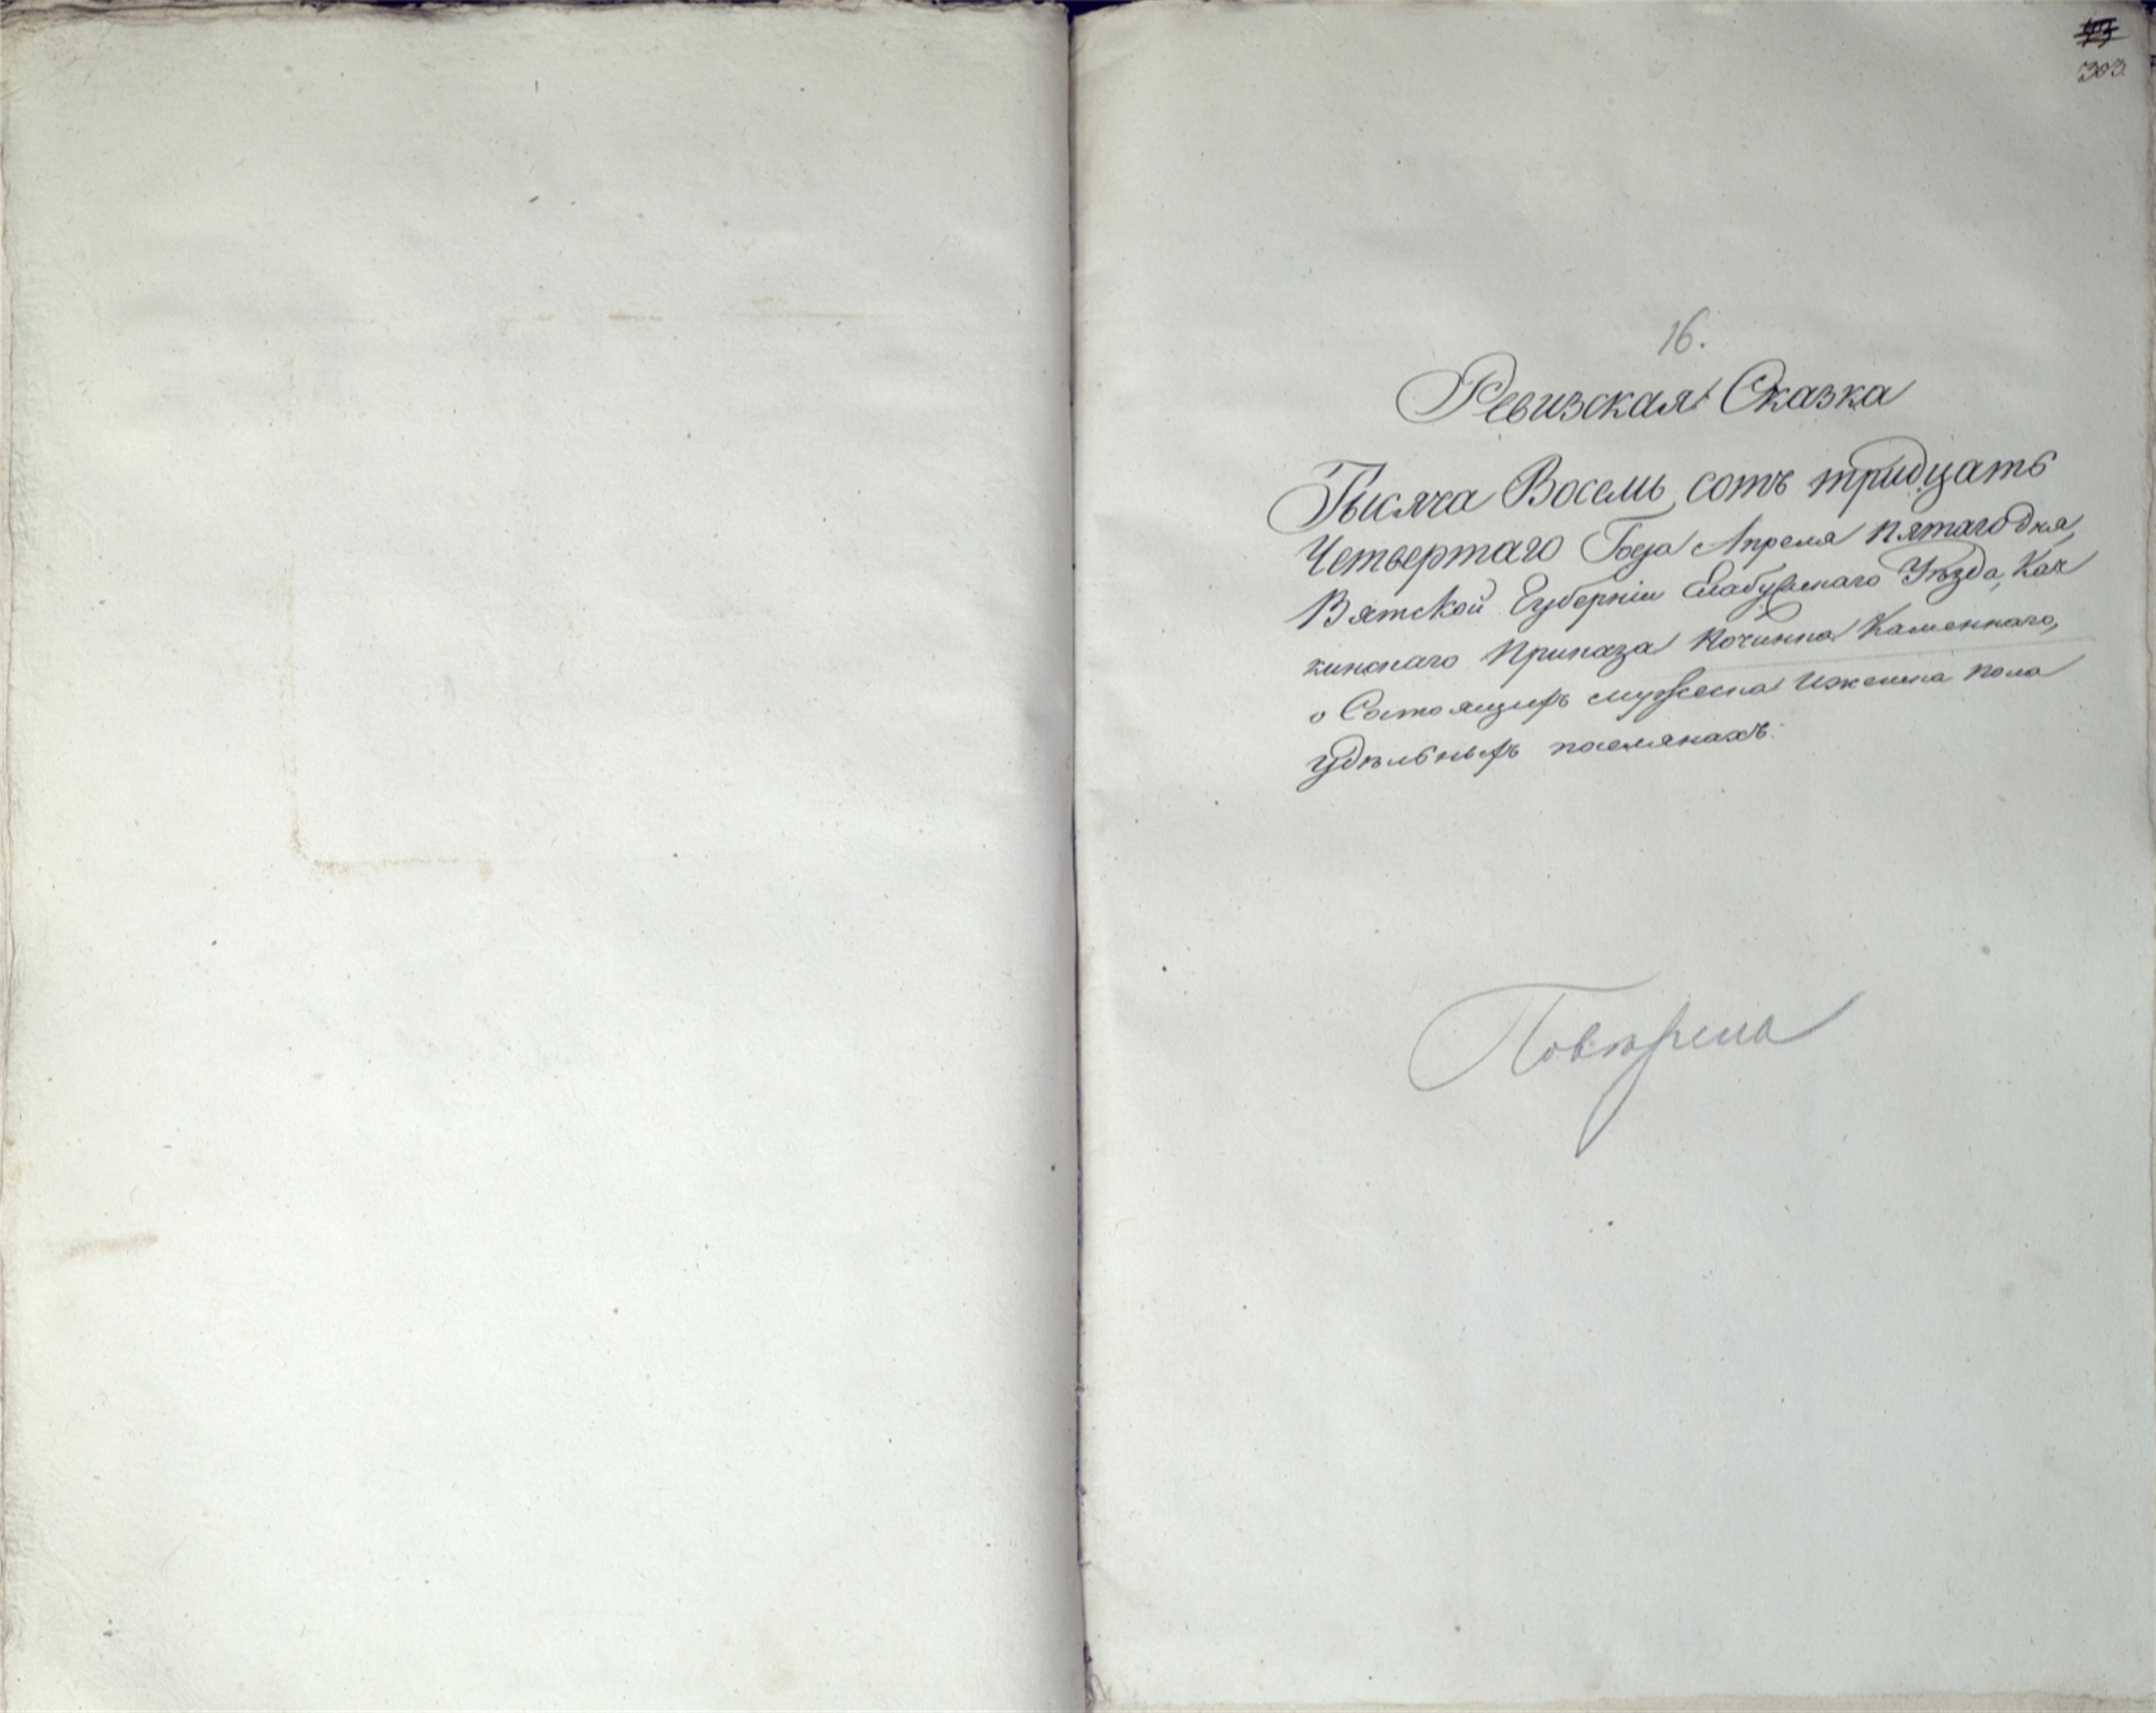 303.
16.
Ревизская Сказка
Тысяча Восемь сотъ тридцать
Четвертаго Года Апреля пятаго дня,
Вятской Губерніи Елабужскаго Уѣзда, Кач
кинскаго Приказа Починка Каменнаго,
о Состоящихъ мужеска и женска пола
удѣльныхъ поселянахъ.
Повѣрена